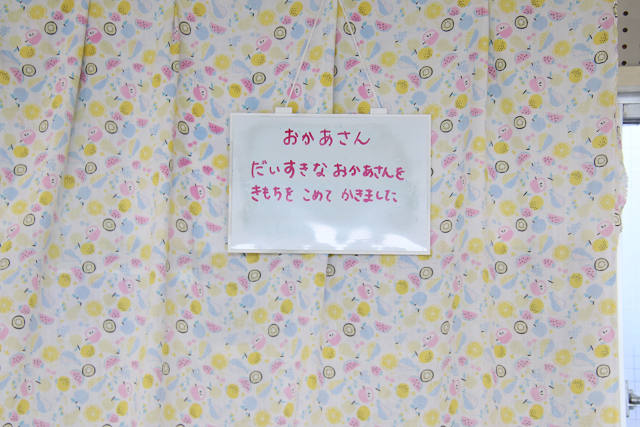 おかあさん
だいすきな おかあさんを
きもちを こめて かきました